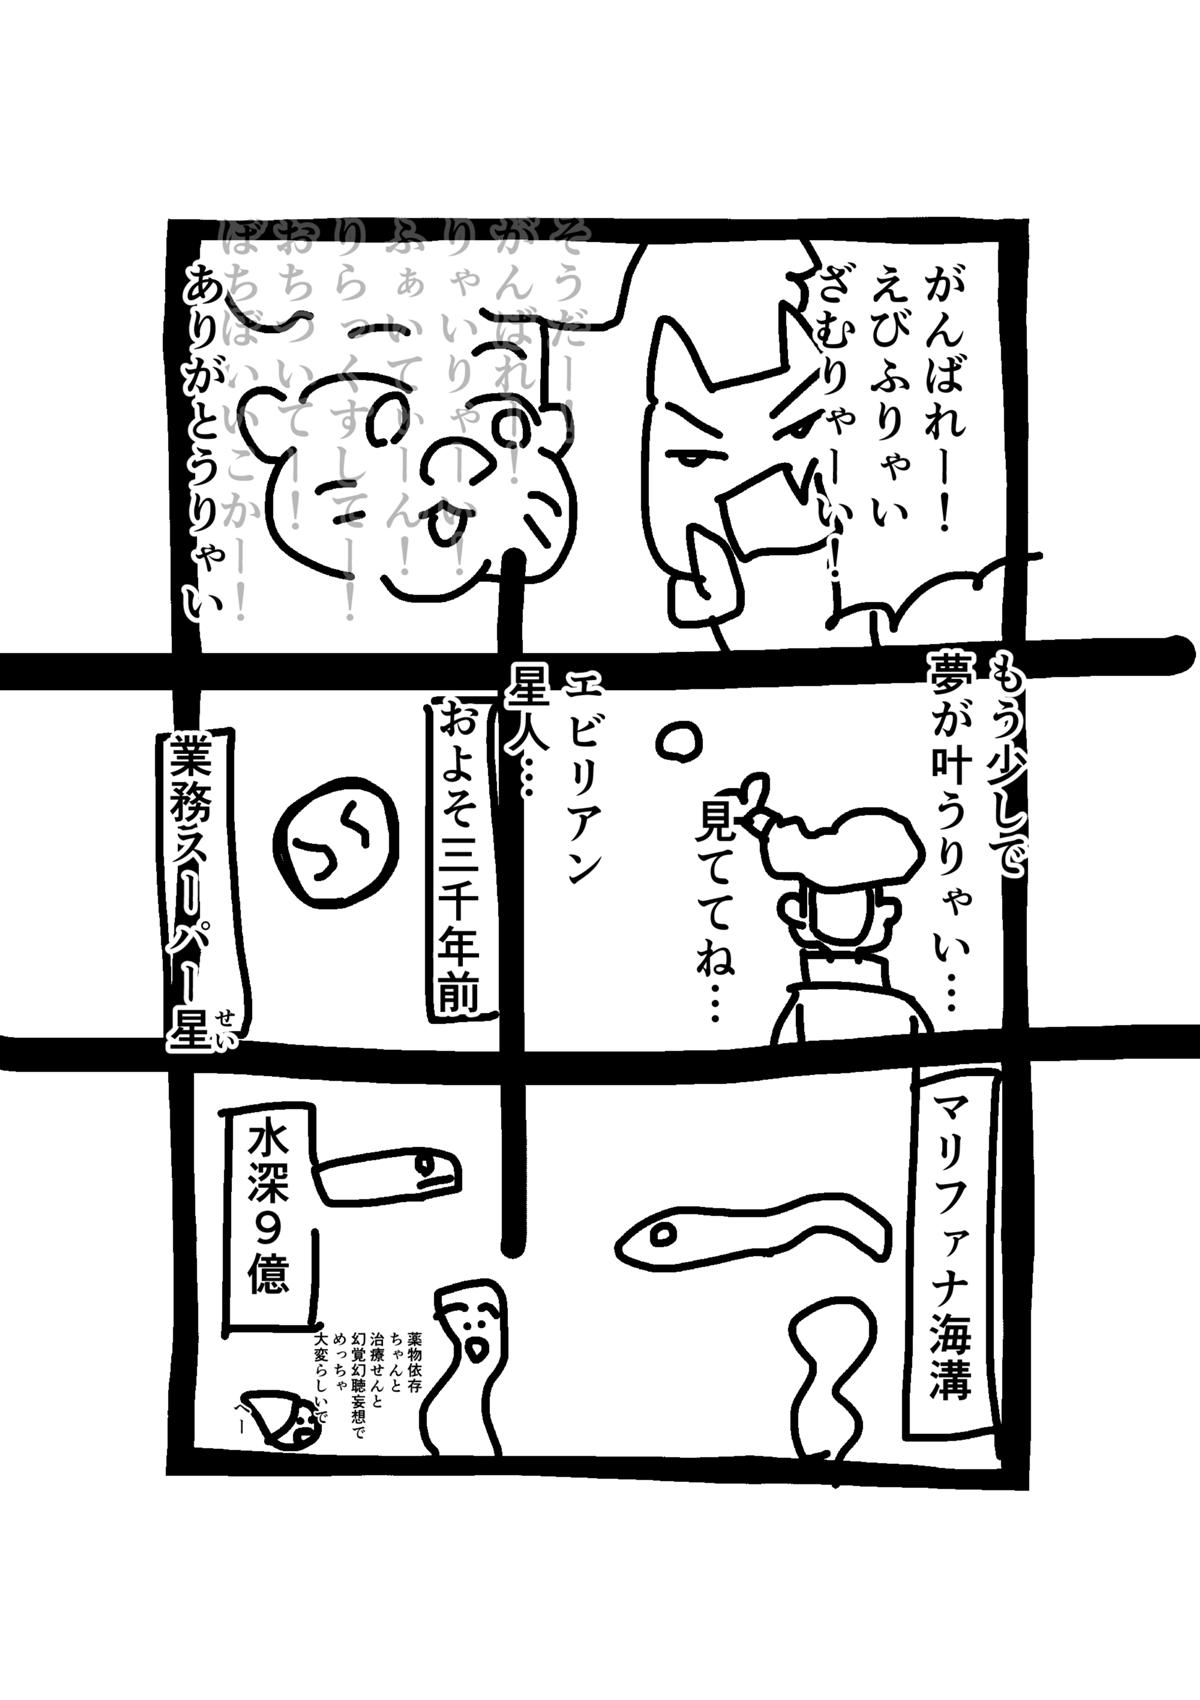 がんばれー！
えびふりゃい
ざむりゃーい！
そうだー！
がんばれー！
りゃいりゃーい！
ふぁいてぃーん！
りらっくすしてー！
おちついてー！
ぼちぼちいこかー！
ありがとうりゃい
もう少しで
夢が叶うりゃい…
見ててね…
エビリアン
星人…
およそ三千年前
業務スーパー星
せい
マリファナ海溝
薬物依存
ちゃんと
治療せんと
幻覚幻聴妄想で
めっちゃ
大変らしいで
へー
水深９億